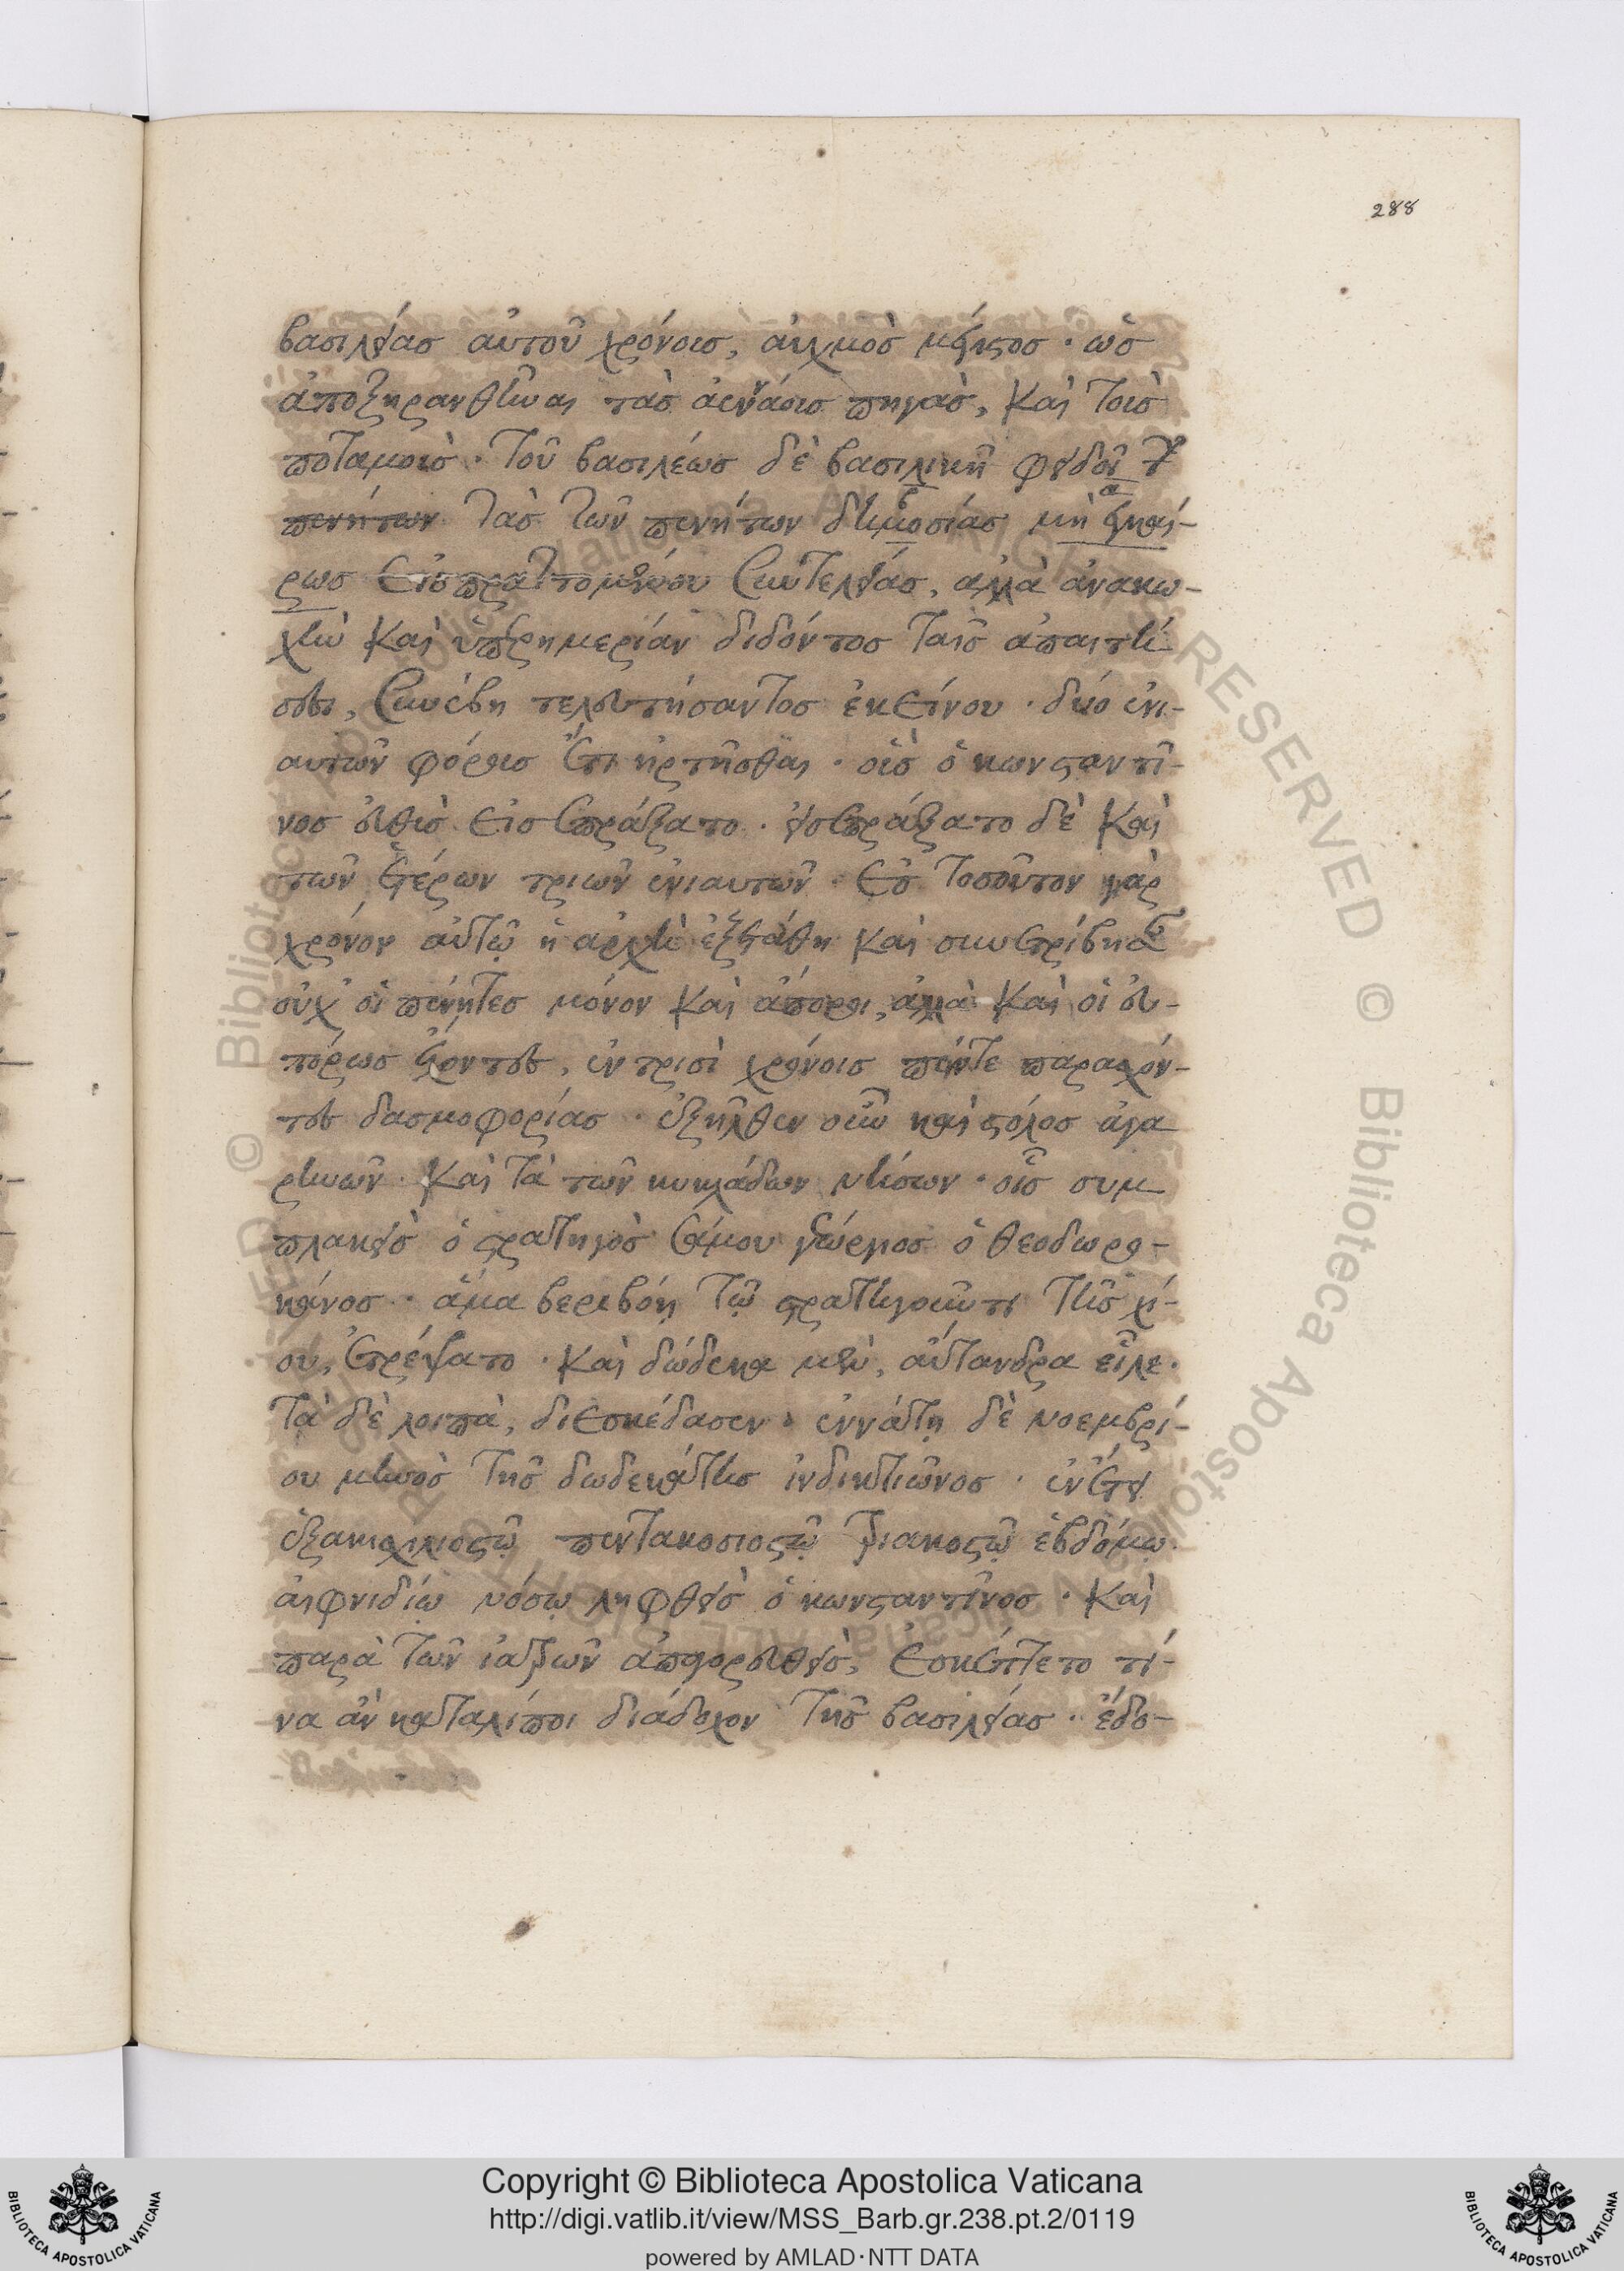 288
βασιλείας αὐτοῦ χρόνοις, αὐχμὸς μέγιστος · ὡς
ἀποξηρανθῆναι τὰς ἀεννάους πηγὰς, καὶ τοὺς
ποταμοὺς · τοῦ βασιλέως δὲ βασιλικῆ φειδοῖ
πενήτων τὰς τῶν πενήτων δημοσίας μὴ
ρως εἰσπραττομένου συντελείας, ἀλλὰ ἀνακω-
χὴν καὶ ὑπερημερίαν διδόντος ταῖς ἀπαιτή-
σεσι, συνέβη τελευτήσαντος ἐκείνου · δύο ἐνι-
αυτῶν φόρους ἔτι ἠρτῆσθαι · οὓς ὁ κωνσταντῖ-
νος εὐθὺς εἰσεπράξατο · εἰσεπράξατο δὲ καὶ
τῶν ἑτέρων τριῶν ἐνιαυτῶν · ἐς τοσοῦτον γὰρ
χρόνον αὐτῷ ἡ ἀρχὴ ἐξετάθη καὶ συνετρίβησαν
οὐχ' οἱ πένητες μόνον καὶ ἄποροι, ἀλλὰ καὶ οἱ εὐ-
πόρως ἔχοντες, ἐν τρισὶ χρόνοις πέντε παρασχόν-
τες δασμοφορίας · ἐξῆλθεν οὖν καὶ στόλος ἀγα
ρηνῶν · καὶ τὰ τῶν κυκλάδων νήσων · οἷς συμ
πλακεὶς ὁ στρατηγὸς σάμου γεώργιος ὁ θεοδωρο-
κάνος · ἅμα βεριβόῃ τῷ στρατηγοῦντι τῆς χί-
ου, ἐτρέψατο · καὶ δώδεκα μὲν, αὔτανδρα εἷλε ·
τὰ δὲ λοιπὰ, διεσκέδασεν · ἐννάτῃ δὲ νοεμβρί-
ου μηνὸς τῆς δωδεκάτης ἰνδικτιῶνος · ἐν ἔτει
ἑξακισχιλιοστῷ πεντακοσιοστῷ τριακοστῷ ἑβδόμῳ
αἰφνιδίῳ νόσῳ ληφθεὶς ὁ κωνσταντῖνος · καὶ
παρὰ τῶν ἰατρῶν ἀπαγορευθεὶς, ἐσκέπτετο τί-
να ἂν καταλίποι διάδοχον τῆς βασιλείας · ἔδο-
Copyright © Biblioteca Apostolica Vaticana
http://digi.vatlib.it/view/MSS_Barb.gr.238.pt.2/0119
powered by AMLAD·NTT DATA
BIBLIOTECA APOSTOLICA VATICANA
BIBLIOTECA APOSTOLICA VATICANA